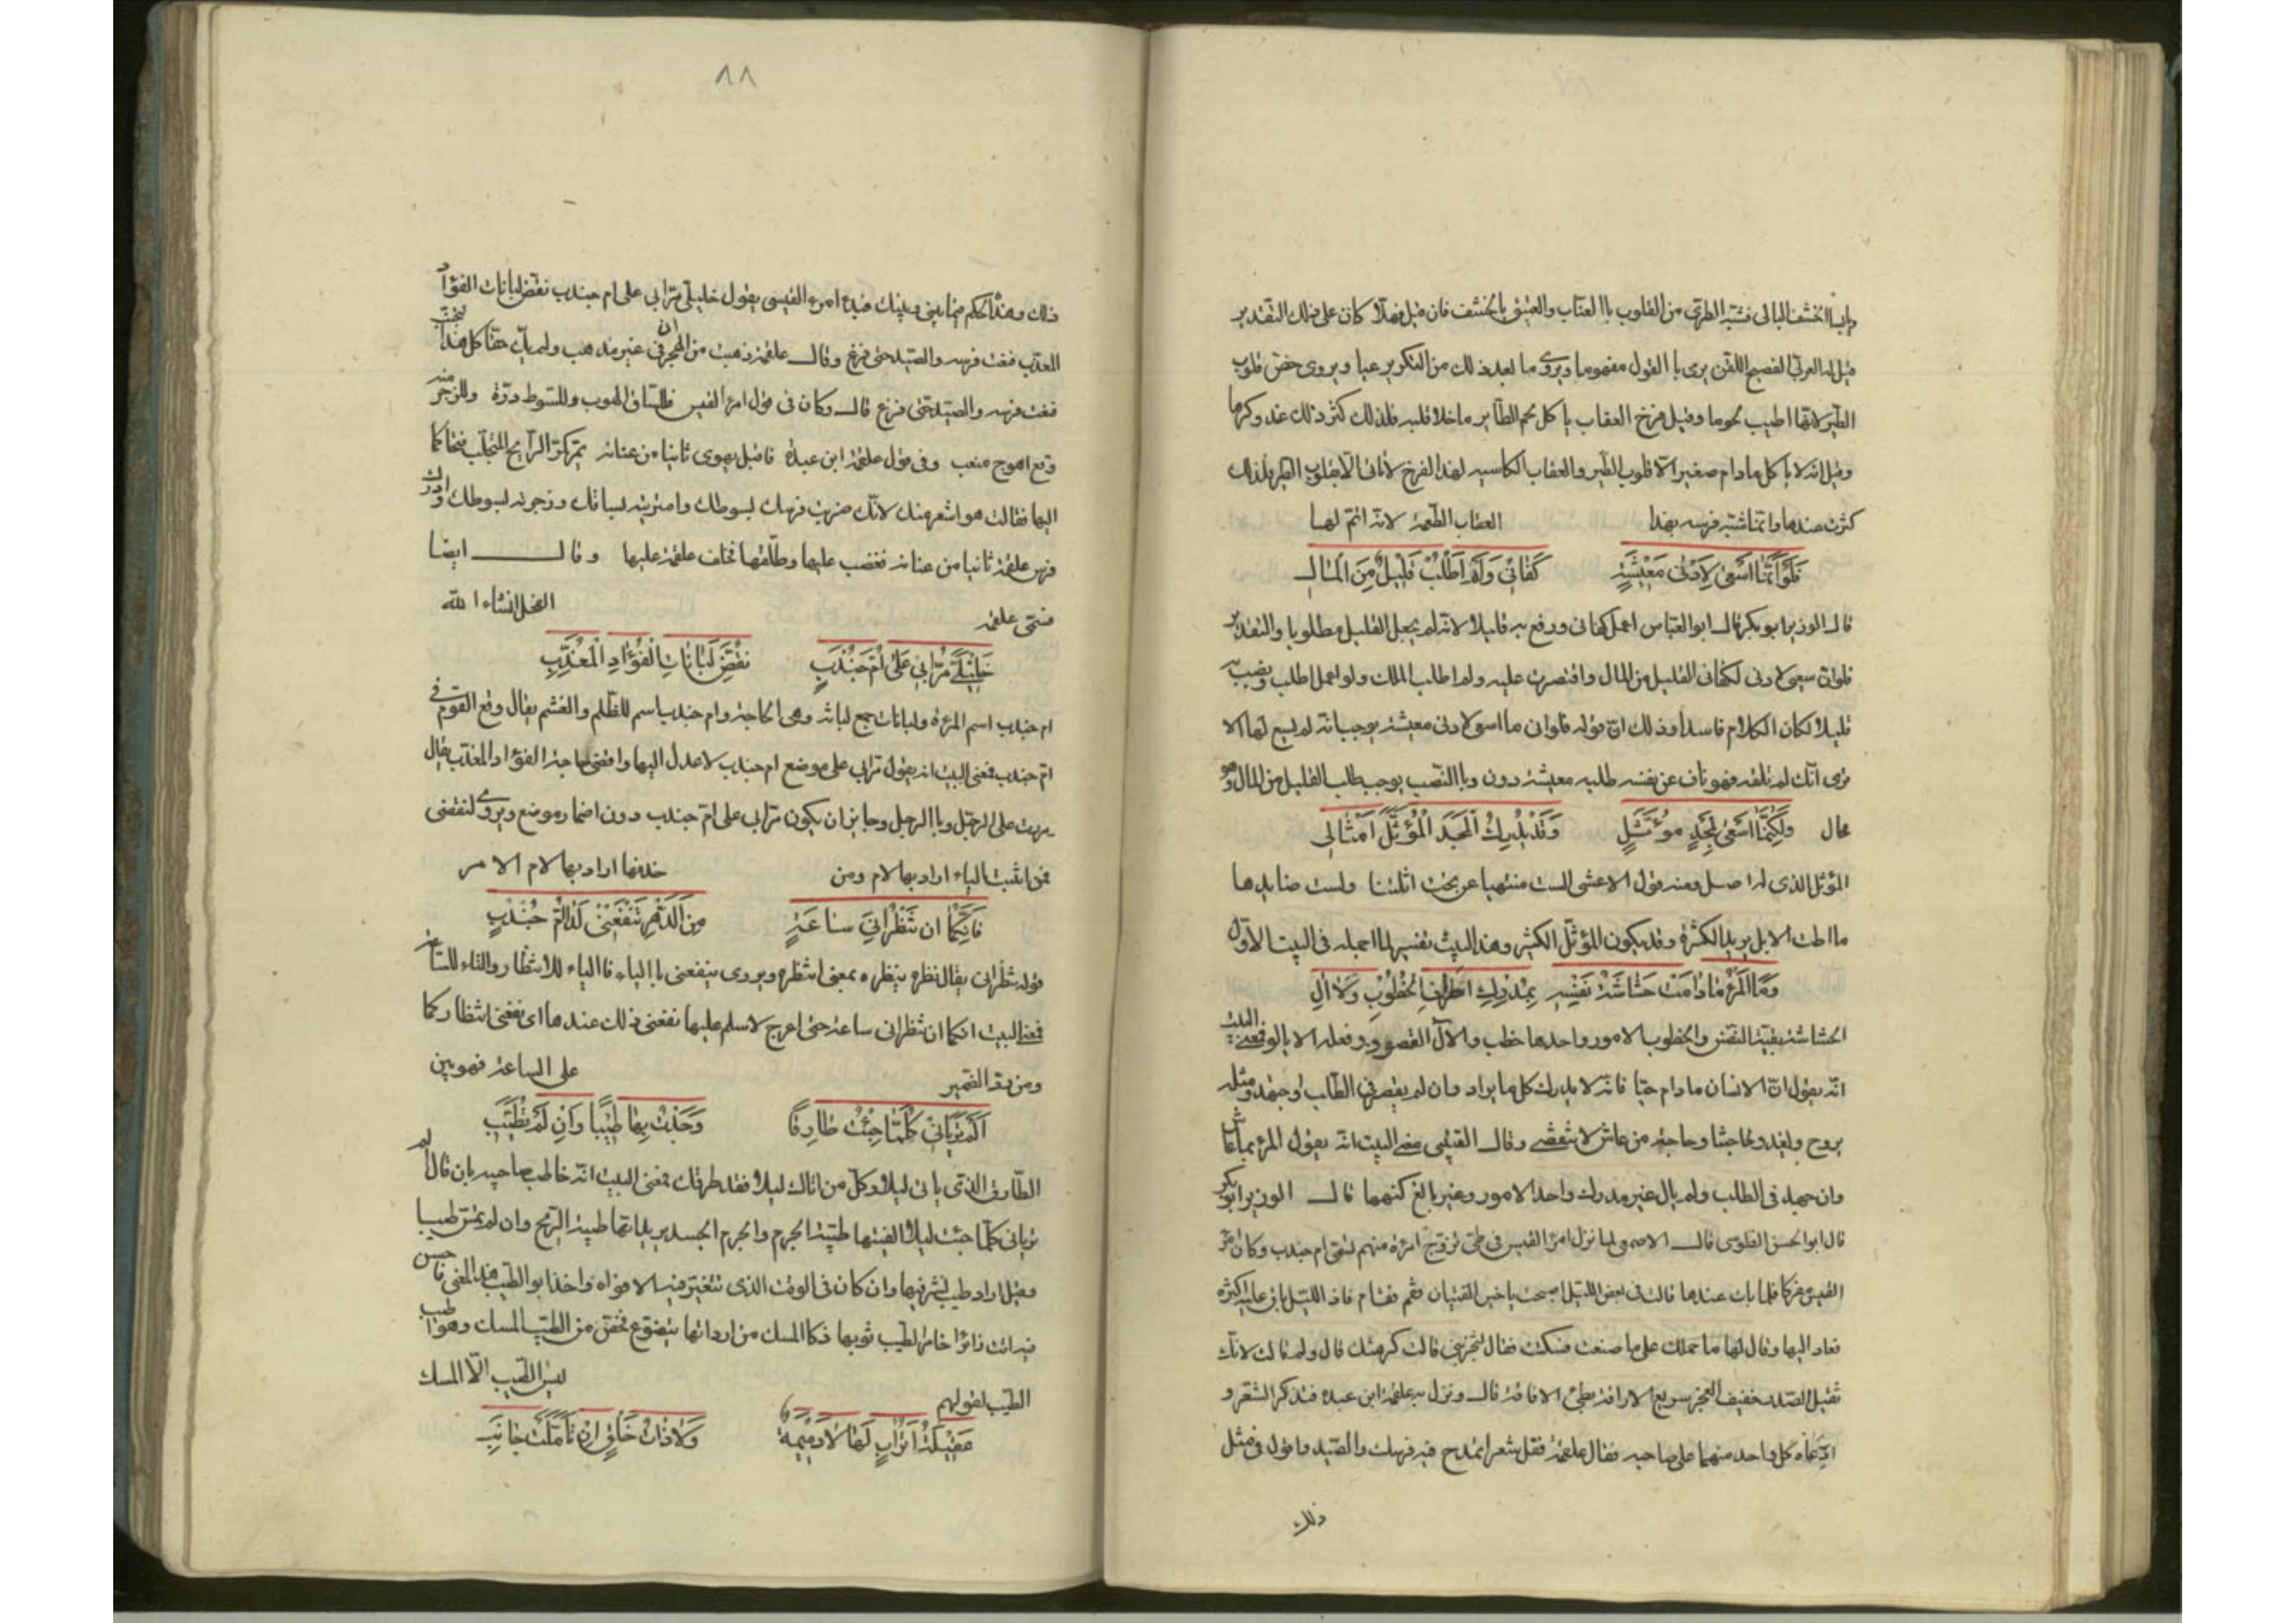 وبالخشف البالي فشبه الطري من القلوب باالعناب والعتيق بالخشف فان قيل فهلا كان على ذلك التقدير
قيل له العربي الفصيح اللقن يرى باالقول مفهوما ويرى ما بعد ذلك من التكرير عيا ويروى خص قلوب
الطير لانها اطيب لحوما وقيل فرخ العقاب ياكل لحم الطاير ما خلا قلبه فلذلك كثر ذلك عند وكرها
وقيل انه لا ياكل مادام صغيرا الا قلوب الطير والعقاب الكاسبه لهذا الفرخ لا تاتي الا بقلوب الطير فلذلك
كثرت عندها وانما شبه فرسه بهذا العقاب الطعمة لانه اتم لها
فَلَوْ اَنَّمَا اَسْعى لِاَدْنى مَعِيْشَةٍ كَفَانى وَلَمْ اَطْلُبْ قَلِيْلٌ مِنَ الْمَالِ
قال الوزير ابو بكر قال ابو العباس اعمل كفانى ورفع به قليلا لانه لم يجعل القليل مطلوبا والتقدير
فلو ان سعيى لادنى لكفانى القليل من المال واقتصرت عليه ولم اطلب الملك ولو اعمل اطلب ونصب به
قليلا لكان الكلام فاسدا وذلك ان قوله فلو ان ما اسعى لادنى معيشة يوجب انه لم يسع لها الا
ترى انك لم تلقه فهو ناف عن نفسه طلبه معيشة دون وباالنصب يوجب طلب القليل من المال وهو
محال وَلكِنَّمَا اَسْعى لِمَجْدٍ مُوَثَّلٍ وَقَدْ يُدْرِكُ الْمَجْدَ الْمُؤَثَّلَ اَمْثَالى
المؤثل الذى له اصل ومنه قول الاعشى الست منتهيا عن نحت اثلتنا ولست ضايرها
ما اطت الابل يريد الكثرة وقد يكون المؤثل الكثير وهذا البيت تفسير لما اجمله فى البيت الاول
وَمَا الْمَرْءُ مَا دَامَتْ حَشَاشَةُ نَفْسِهِ بِمُدْرِكِ اَطْرَافِ الْخُطُوبِ وَلَا اٰلِ
الحشاشة بقية النفس والخطوب الامور واحدها خطب والال القصور وفعله الا يالو فمعنى البيت
انه يقول ان الانسان مادام حيا فانه لا يدرك كل ما يراد وان لم يقصر فى الطلب او جهد ومثله
يروح ويغدو لحاجتنا وحاجة من عاش لا تنقضى وقال القتيبى معنى البيت انه يقول المرء بما عاش
وان جهد فى الطلب ولم يال غير مدرك واحد الامور وغير بالغ كنهها قال الوزير ابو بكر
قال ابو الحسن الطوسى قال الاصمعى لما نزل امرؤ القيس فى طى تزوج امراة منهم تسمى ام جندب وكان امرؤ
القيس مفركا فلما بات عندها قالت فى بعض الليل اصبحت يا خير الفتيان فقم فقام فاذا الليل باق عليه اكثره
فعاد اليها وقال لها ما حملك على ما صنعت فسكتت فقال لتخبرينى قالت كرهتك قال ولم قالت لانك
ثقيل الصدر خفيف العجز سريع الاراقة بطئ الافاقة قال ونزل به علقمة ابن عبده فتذكر الشعر و
ادعاه كل واحد منهما على صاحبه فقال علقمة فقل شعرا تمدح فيه فرسك والصيد واقول فى مثل
ذلك
٨٨
ذلك وهذه الحكم فيما بينى وبينك فبدء امرء القيس يقول خليلى مرا بى على ام جندب نقض لبانات الفؤاد
المعذب فنعت فرسه والصيد حتى فرغ وقال علقمة ذهبت من الهجران فى غير مذهب ولم يك حقا كل هذا التجنب
فنعت فرسه والصيد حتى فرغ قال وكان فى قول امرئ القيس فللساق الهوب وللسوط درة وللزجر منه
وقع اهوج منعب وفى قول علقمة ابن عبدة فاقبل يهوى ثانيا من عنانه يمر كمر الرايح المتحلب فتحاكما
اليها فقالت هو اشعر منك لانك ضربت فرسك بسوطك وامتريته بساقك وزجرته بسوطك وادرك
فرس علقمة ثانيا من عنانه فغضب عليها وطلقها فخلف علقمة عليها وقال ايضا
فسمى علقمة الفحل انشاء الله
خَلِيْلَيَّ مُرَّا بِى عَلى اُمِّ جُنْدَبٍ نَقْضِ لُبَانَاتِ الْفُؤَادِ الْمُعَذَّبِ
ام جندب اسم المرءة ولبانات جمع لبانه وهى الحاجة وام جندب اسم للظلم والغشم يقال وقع القوم فى
ام جندب فمعنى البيت انه يقول مرا بى على موضع ام جندب لاعدل اليها واقضى حاجة الفؤاد المعذب يقال
مررت على الرجل وباالرجل وجايز ان يكون مرا بى على ام جندب دون اضمار موضع ويروى لنقضى
فمن اثبت الياء اراد بها لام ومن حذفها اراد بها لام الامر
فَاِنَّكُمَا اِنْ تَنْظُرَانِيَ سَاعَةً مِنَ الدَّهْرِ تَنْفَعْنِى لَدى اُمِّ جُنْدَبِ
قوله تنظرانى يقال نظره ينظره بمعنى انتظره ويروى ينفعنى باالياء فاالياء للانتظار والتاء للساعة
فمعنى البيت انكما ان تنظرانى ساعة حتى اعرج لاسلم عليها نفعنى ذلك عندها اى نفعنى انتظاركما
ومن رد الضمير على الساعة فهو بين
اَلَمْ تَرَيَانى كُلَّمَا جِئْتُ طَارِقًا وَجَدْتُ بِهَا طِيْبًا وَاِنْ لَمْ تَطَيَّبِ
الطارق الذى ياتى ليلا وكل من اتاك ليلا فقد طرقك فمعنى البيت انه خاطب صاحبيه بان قال الم
تريانى كلما جئت ليلا الفيتها طيبة الجرم والجرم الجسد يريد انها طيبة الريح وان لم تمس طيبا
وقيل اراد طيب نشر فيها وان كان فى الوقت الذى تتغير فيه الافواه واخذ ابو الطيب هذا المعنى فاحسن
فيه اتت زائرا خامر الطيب ثوبها فكاالمسك من اردانها يتضوع فحقق من الطيب المسك وهو اطيب
الطيب لقولهم ليس الطيب الا المسك
عَقِيْلَةُ اَتْرَابٍ لَهَا لَا دَمِيْمَةٌ وَلَا ذَاتُ خَلْقٍ اِنْ تَاَمَّلْتَ جَانَبِ